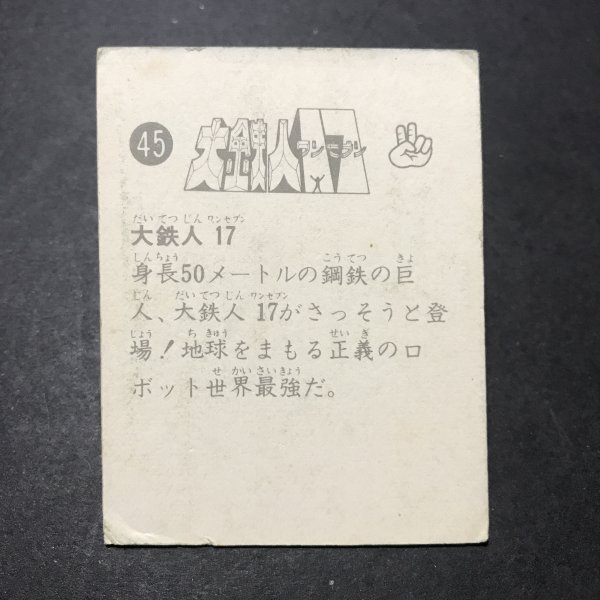 45
大鉄人17
ワンセブン
だいてつじんワンセブン
大鉄人 17
しんちょう こうてつ きょ
身長50メートルの鋼鉄の巨
じん だいてつじんワンセブン とう
人、大鉄人 17がさっそうと登
じょう ちきゅう せいぎ
場!地球をまもる正義のロ
せかいさいきょう
ボット世界最強だ。